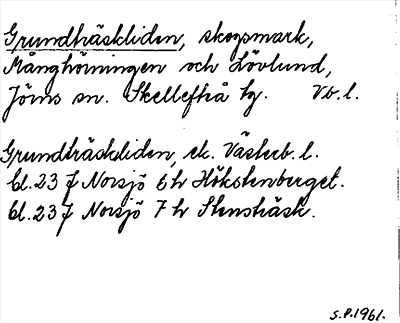 Grundträskliden, skogsmark,
Månghörningen och Lövlund,
Jörns sn. Skellefteå tg. Vb. l.
Grundträskliden, ek. Västerb. l.
bl. 23 J Norsjö 6 h Hökstenberget.
bl. 23 J Norsjö 7 h Stensträsk.
S.P. 1961.